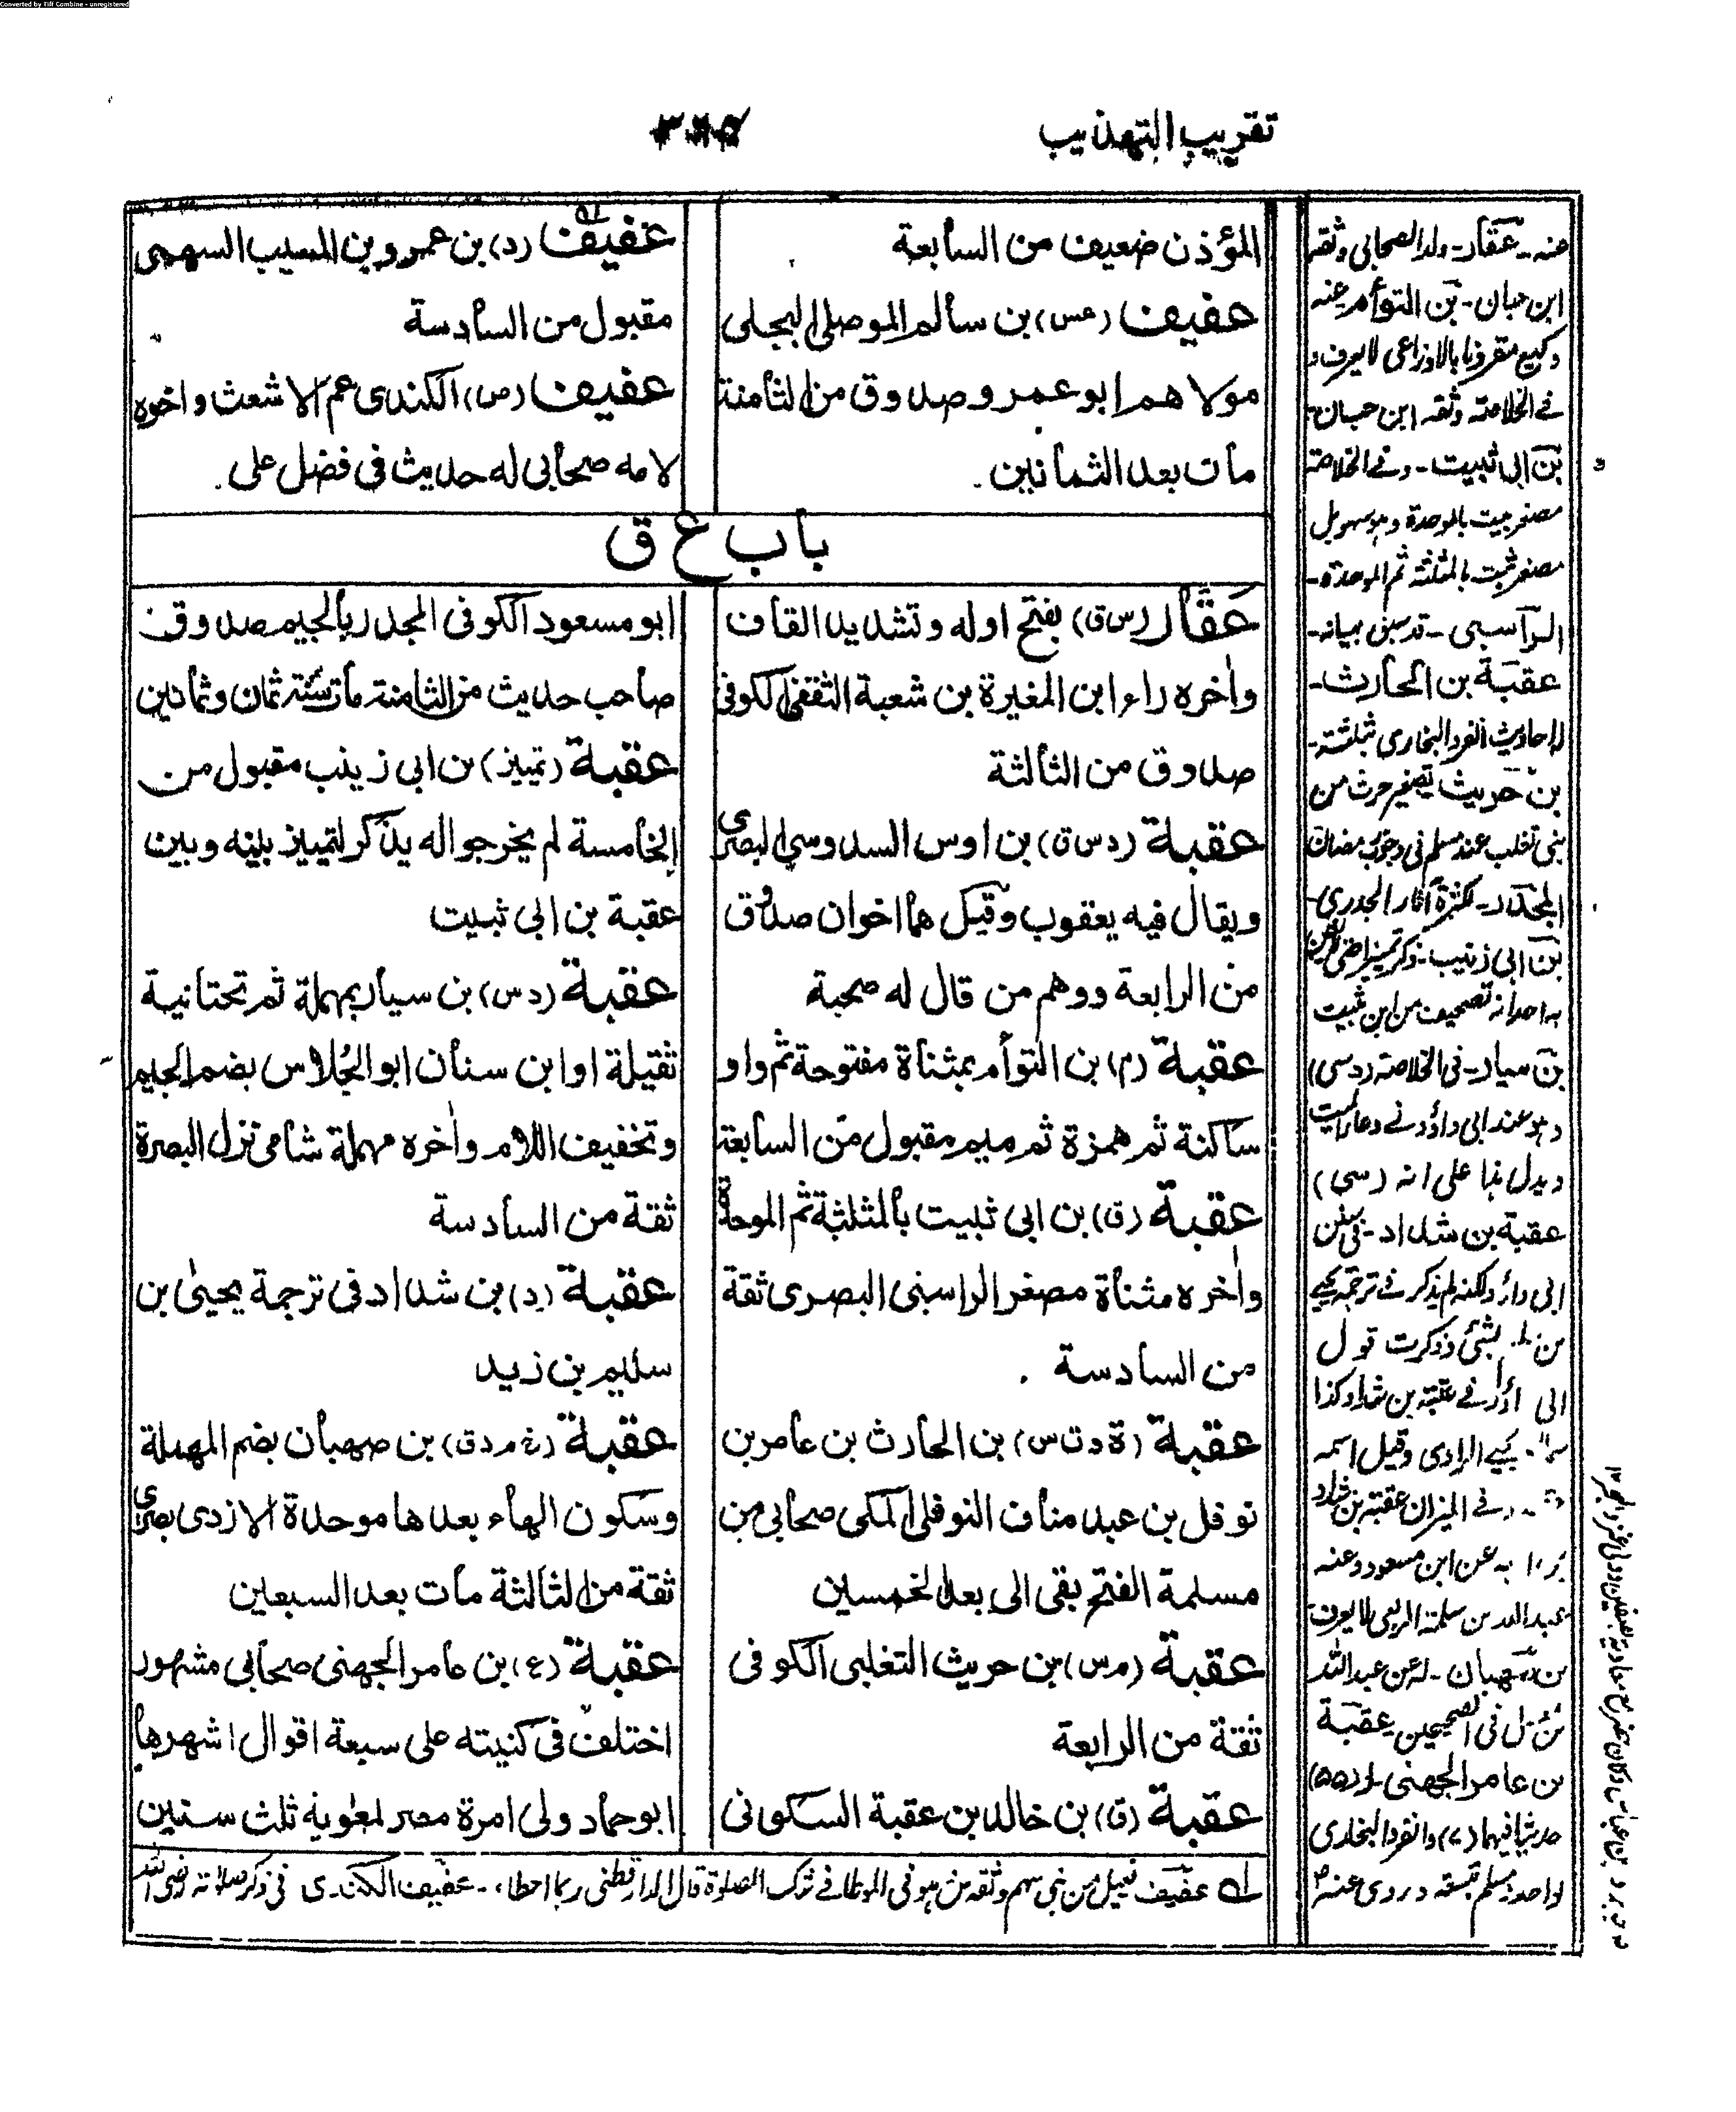 Converted by Tiff Combine - unregistered
تقريب التهذيب
المؤذن ضعيف من السابعة
عفيف (عس) بن سالم الموصلي البجلي
مولاهم ابو عمرو صدوق من الثامنة
مات بعد الثمانين.
عفيف (د) بن عمرو بن المسيب السهمى
مقبول من السادسة
عفيف (ص) الكندى عم الاشعث واخوه
لامه صحابى له حديث فى فضل على.
باب ع ق
عَقَّار (س ق) بفتح اوله وتشديد القاف
واٰخره راء ابن المغيرة بن شعبة الثقفى الكوفى
صدوق من الثالثة
عقبة (د س ق) بن اوس السدوسى البصرى
ويقال فيه يعقوب وقيل هما اخوان صدوق
من الرابعة ووهم من قال له صحبة
عقبة (م) بن التوأم بمثناة مفتوحة ثم واو
ساكنة ثم همزة ثم ميم مقبول من السابعة
عقبة (ق) بن ابى ثبيت بالمثلثة ثم الموحدة
واٰخره مثناة مصغر الراسبى البصرى ثقة
من السادسة .
عقبة (خ د ت س) بن الحارث بن عامر بن
نوفل بن عبد مناف النوفلى المكى صحابى من
مسلمة الفتح بقى الى بعد الخمسين
عقبة (م س) بن حريث التغلبى الكوفى
ثقة من الرابعة
عقبة (ق) بن خالد بن عقبة السكونى
ابو مسعود الكوفى المجدر بالجيم صدوق
صاحب حديث من الثامنة مات سنة ثمان وثمانين
عقبة (تمييز) بن ابى زينب مقبول من
الخامسة لم يخرجوا له يذكر لتمييز بينه وبين
عقبة بن ابى ثبيت
عقبة (د س) بن سيار بمهملة ثم تحتانية
ثقيلة او ابن سنان ابو الجُلاس بضم الجيم
وتخفيف اللام واٰخره مهملة شامى نزل البصرة
ثقة من السادسة
عقبة (د) بن شداد فى ترجمة يحيىٰ بن
سليم بن زيد
عقبة (خ م د ق) بن صهبان بضم المهملة
وسكون الهاء بعدها موحدة الازدى بصرى
ثقة من الثالثة مات بعد السبعين
عقبة (ع) بن عامر الجهنى صحابى مشهور
اختلف فى كنيته على سبعة اقوال اشهرها
ابو حماد ولى امرة مصر لمعٰوية ثلث سنين
عنه - عقار - ولد الصحابى وثقه
ابن حبان - بن التوأم عنه
وكيع مقرونا بالاوزاعى لا يعرف و
فى الخلاصة وثقه ابن حبان -
بن ابى ثبيت - وفى الخلاصة
مصغر بيت بالموحدة وهو سهو بل
مصغر ثبت بالمثلثة ثم الموحدة -
الراسبى - قد سبق بيانه -
عقبة بن الحارث -
له احاديث انفرد البخارى بثلثة -
بن حريث تصغير حرث من
بنى تغلب عند مسلم فى
المجدر - لكثرة آثار الجدرى -
بن ابى زينب - ذكر تمييزا
به احد انه تصحيف من ابن ثبيت
بن سيار - فى الخلاصة (د سى)
وهو عند ابى داؤد فى دعاء الميت
ويدل هذا على انه (سى)
عقبة بن شداد - فى سنن
ابى داؤد ولكنه لم يذكر فى ترجمة يحيى
بشئ وذكرت قول
ابى داؤد فى عقبة بن شداد وكذا
يحيى الراوى وقيل اسمه
فى الميزان عقبة بن شداد
عن ابن مسعود وعنه
عبد الله بن سلمة الربعى لا يعرف
بن صهبان - له عن عبد الله
بن مغفل فى الصحيحين - عقبة
بن عامر الجهنى - له (٥٥)
حديثا فيهما (٧) وانفرد البخارى
بواحد ومسلم بتسعة وروى عنه
ﻟﻪ عفيف قيل من بنى سهم وثقه س هو فى الموطا فى ترك الصلوة قال الدارقطنى ربما اخطاء - عفيف الكندى فى ذكر صلاته رضى الله